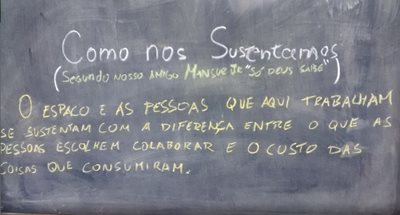 Como nos Sustentamos
(Segundo nosso amigo Mangue Je "só Deus sabe")
O ESPAÇO E AS PESSOAS QUE AQUI TRABALHAM
SE SUSTENTAM COM A DIFERENÇA ENTRE O QUE AS
PESSOAS ESCOLHEM COLABORAR E O CUSTO DAS
COISAS QUE CONSUMIRAM.